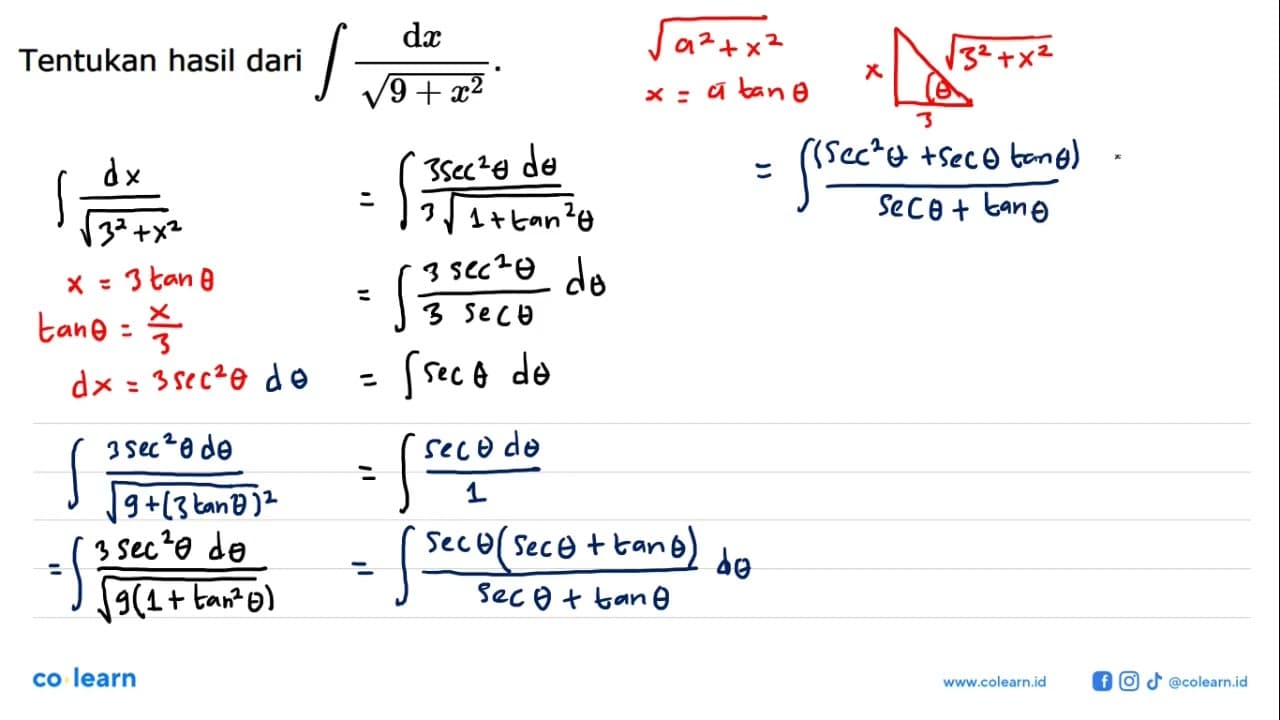 Tentukan hasil dari ∫ dx / √(9 + x²) .
√(a² + x²)
x = a tan θ
x
√(3² + x²)
θ
3
∫ dx / √(3² + x²)
x = 3 tan θ
tan θ = x / 3
dx = 3 sec² θ dθ
∫ 3 sec² θ dθ / √(9 + (3 tan θ)²)
= ∫ 3 sec² θ dθ / √(9(1 + tan² θ))
= ∫ 3 sec² θ dθ / 3√(1 + tan² θ)
= ∫ 3 sec² θ / 3 sec θ dθ
= ∫ sec θ dθ
= ∫ sec θ dθ / 1
= ∫ sec θ (sec θ + tan θ) / sec θ + tan θ dθ
= ∫ (sec² θ + sec θ tan θ) / sec θ + tan θ
co learn
www.colearn.id
@colearn.id